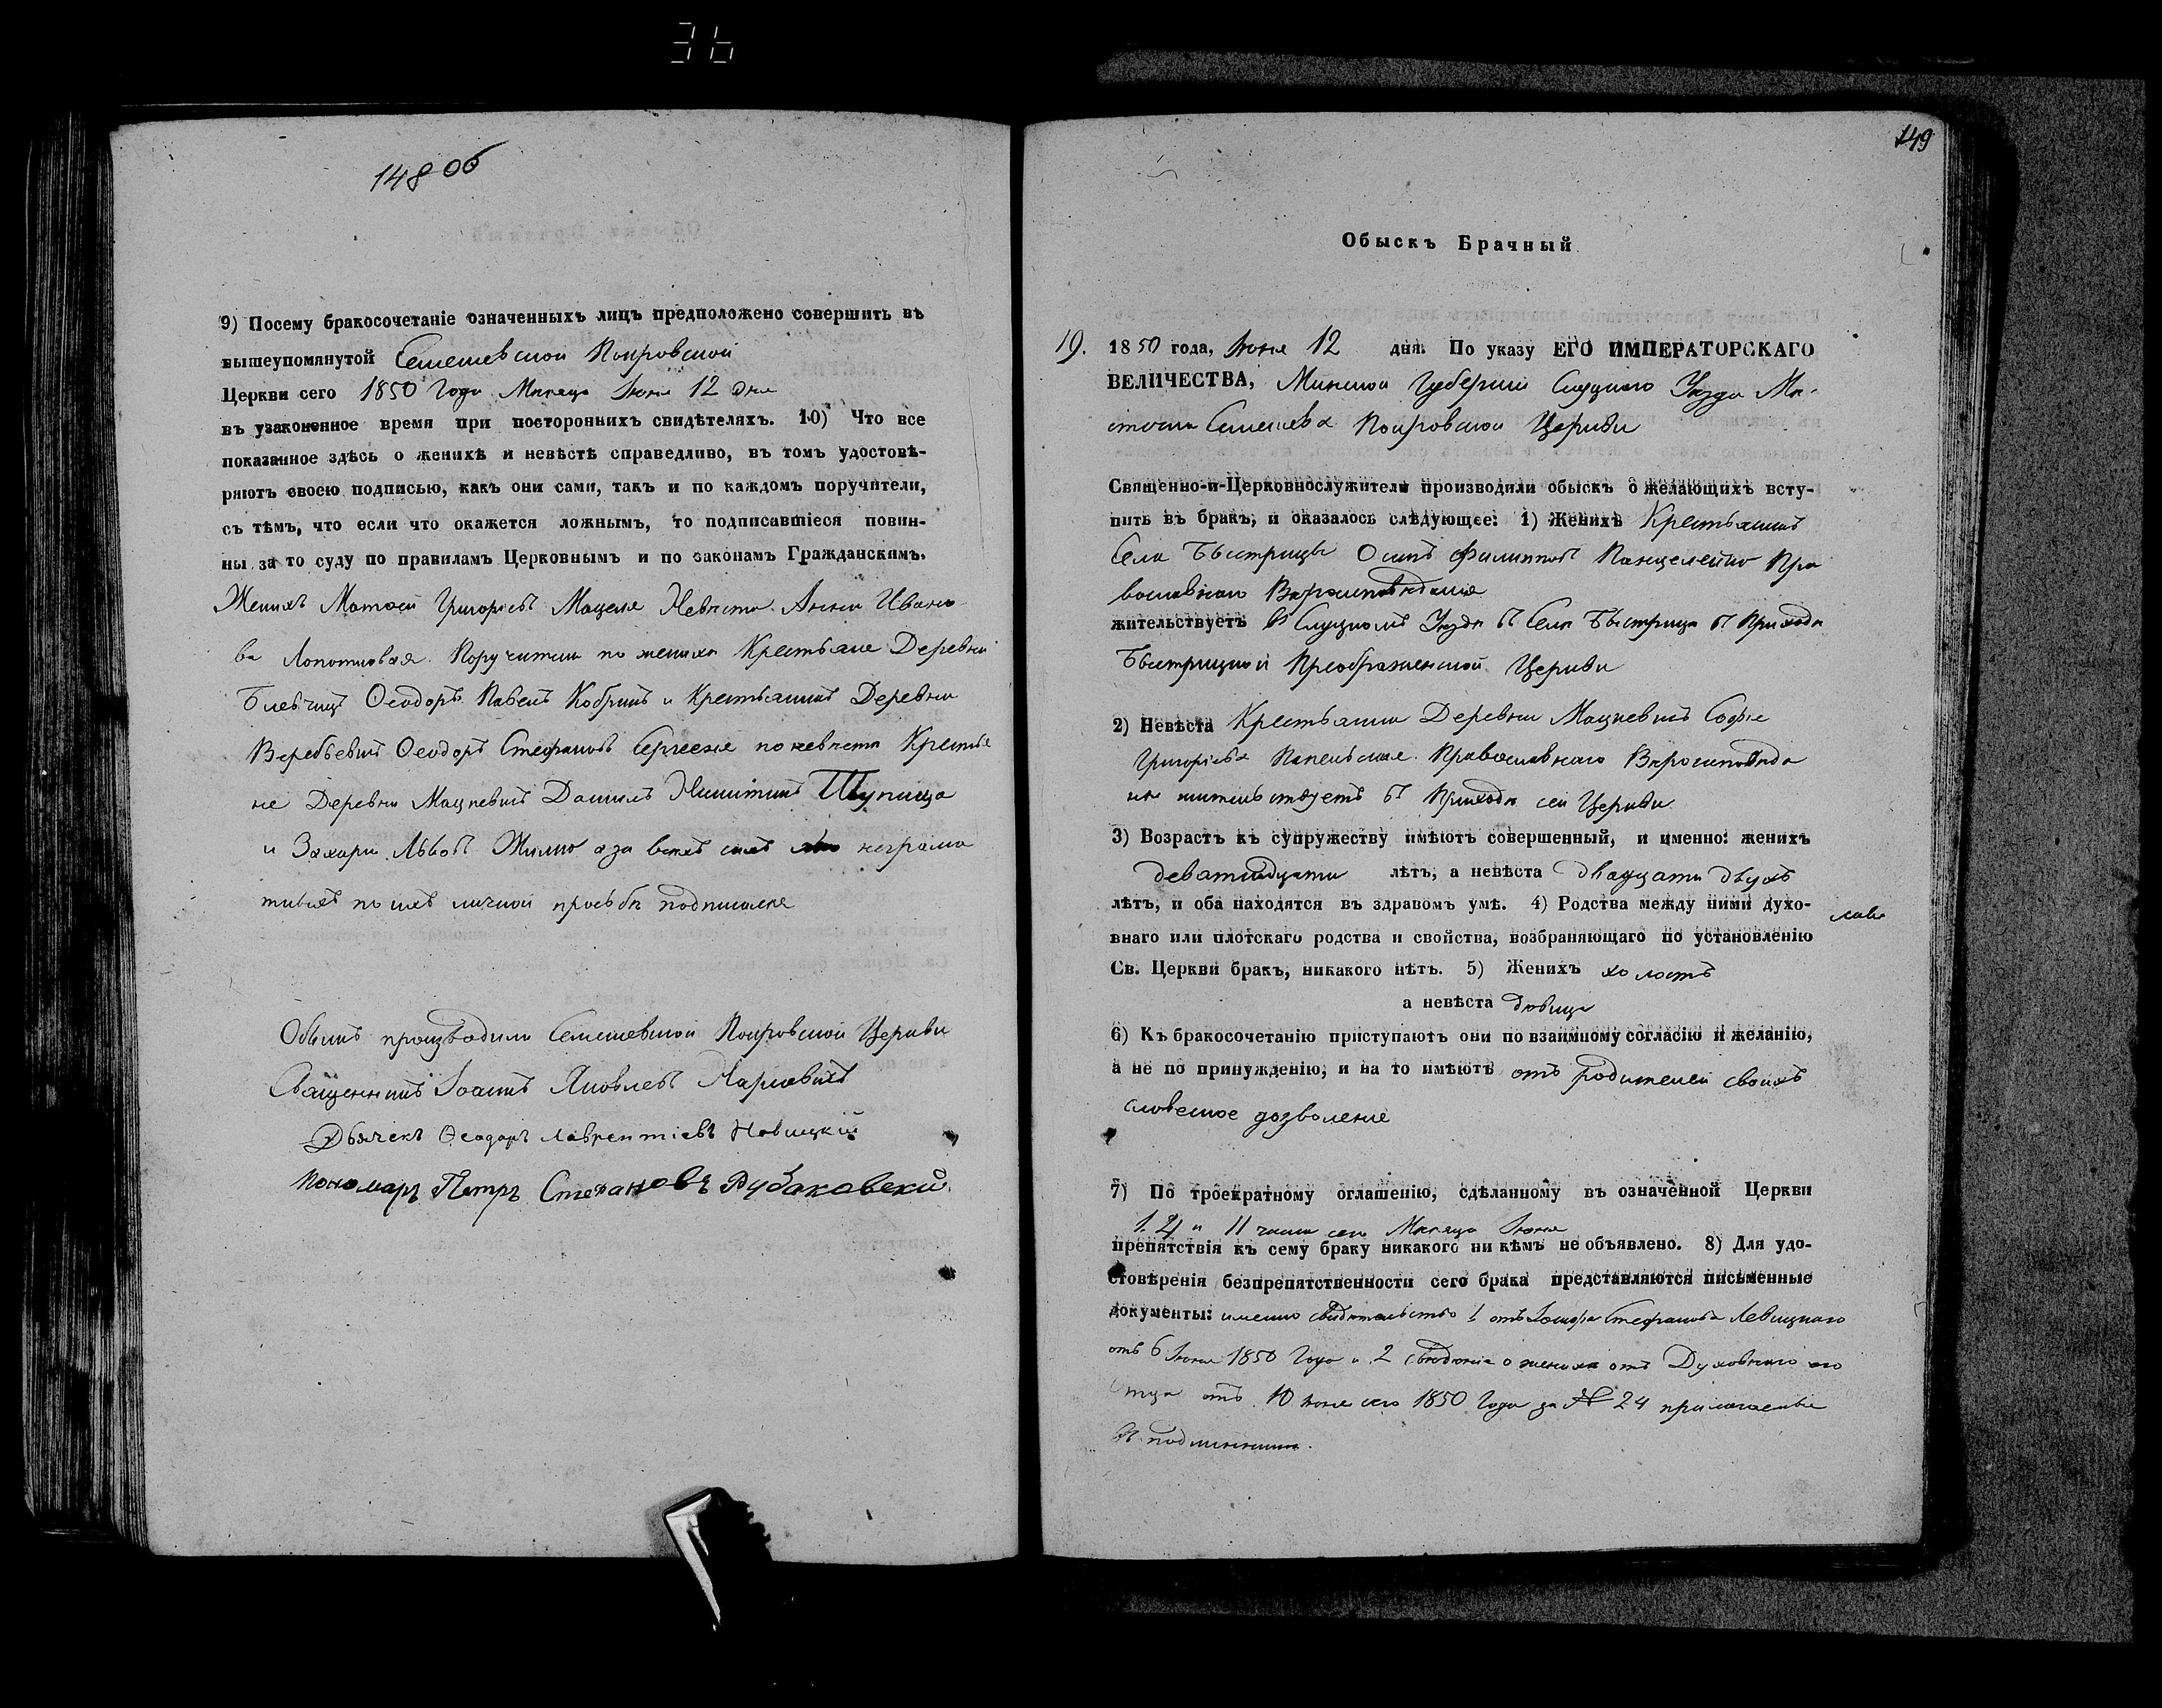 36
148 об
9) Посему бракосочетаніе означенныхъ лицъ предположено совершить въ
вышеупомянутой Семежевской Покровской
Церкви сего 1850 Года Мѣсяца Іюня 12 дня
въ узаконенное время при постороннихъ свидѣтеляхъ. 10) Что все
показанное здѣсь о женихѣ и невѣстѣ справедливо, въ томъ удостовѣ-
ряютъ своею подписью, какъ они сами, такъ и по каждомъ поручители,
съ тѣмъ, что если что окажется ложнымъ, то подписавшіеся повин-
ны за то суду по правиламъ Церковнымъ и по законамъ Гражданскимъ.
Женихъ Матѳей Григорьевъ Мацеля Невѣста Анна Ивано
ва Лопотковая Поручители по женихѣ Крестьяне Деревни
Ѳеодоръ Павелъ Кобринъ и Крестьянинъ Деревни
Ѳеодоръ Стефановъ Сергееня по невѣстѣ Крестья
не Деревни Мацкевичъ Данилъ Никитинъ Тупица
и Захарій Львовъ Жилко а за всѣхъ сихъ неграмо
тныхъ по ихъ личной просьбѣ подписался
Обыскъ производили Семежевской Покровской Церкви
Священникъ Іоаннъ Яковлевъ
Дьячекъ Ѳеодоръ Лаврентіевъ Новицкій
Пономарь Петръ Стефановъ Рубаковскій
149
Обыскъ Брачный
19. 1850 года, Іюня 12 дня. По указу ЕГО ИМПЕРАТОРСКАГО
ВЕЛИЧЕСТВА, Минской Губерніи Слуцкаго Уѣзда Мѣ-
стечка Семежева Покровской Церкви
Священно-и-Церковнослужители производили обыскъ о желающихъ всту-
пить въ бракъ, и оказалось слѣдующее: 1) Женихъ Крестьянинъ
Села Быстрицы Осипъ Филиповъ Панцелейко Пра
вославнаго Вѣроисповѣданія
жительствуетъ въ Слуцкомъ Уѣздѣ въ Селѣ Быстрицѣ въ Приходѣ
Быстрицкой Преображенской Церкви
2) Невѣста Крестьянка Деревни Мацкевичъ Софія
Григорьева Православнаго Вѣроисповѣда
нія жительствуетъ въ Приходѣ сей Церкви
3) Возрастъ къ супружеству имѣютъ совершенный, и именно: женихъ
девятнадцати лѣтъ, а невѣста двадцати двухъ
лѣтъ, и оба находятся въ здравомъ умѣ. 4) Родства между ними духо-
внаго или плотскаго родства и свойства, возбраняющаго по установленію
Св. Церкви бракъ, никакого нѣтъ. 5) Женихъ холостъ
а невѣста дѣвица
6) Къ бракосочетанію приступаютъ они по взаимному согласію и желанію,
а не по принужденію, и на то имѣютъ отъ родителей своихъ
словесное дозволеніе
7) По троекратному оглашенію, сдѣланному въ означенной Церкви
1. 4 и 11 числа сего Мѣсяца Іюня
препятствія къ сему браку никакого ни кѣмъ не объявлено. 8) Для удо-
стовѣренія безпрепятственности сего брака представляются письменные
документы: именно свидѣтельство 1 отъ Стефанова Левицкаго
отъ 6 Іюня 1850 Года и 2 свѣдѣніе о женихѣ отъ Духовнаго его
Отца отъ 10 Іюня сего 1850 Года за № 24 прилагаемые
въ подлинникѣ.